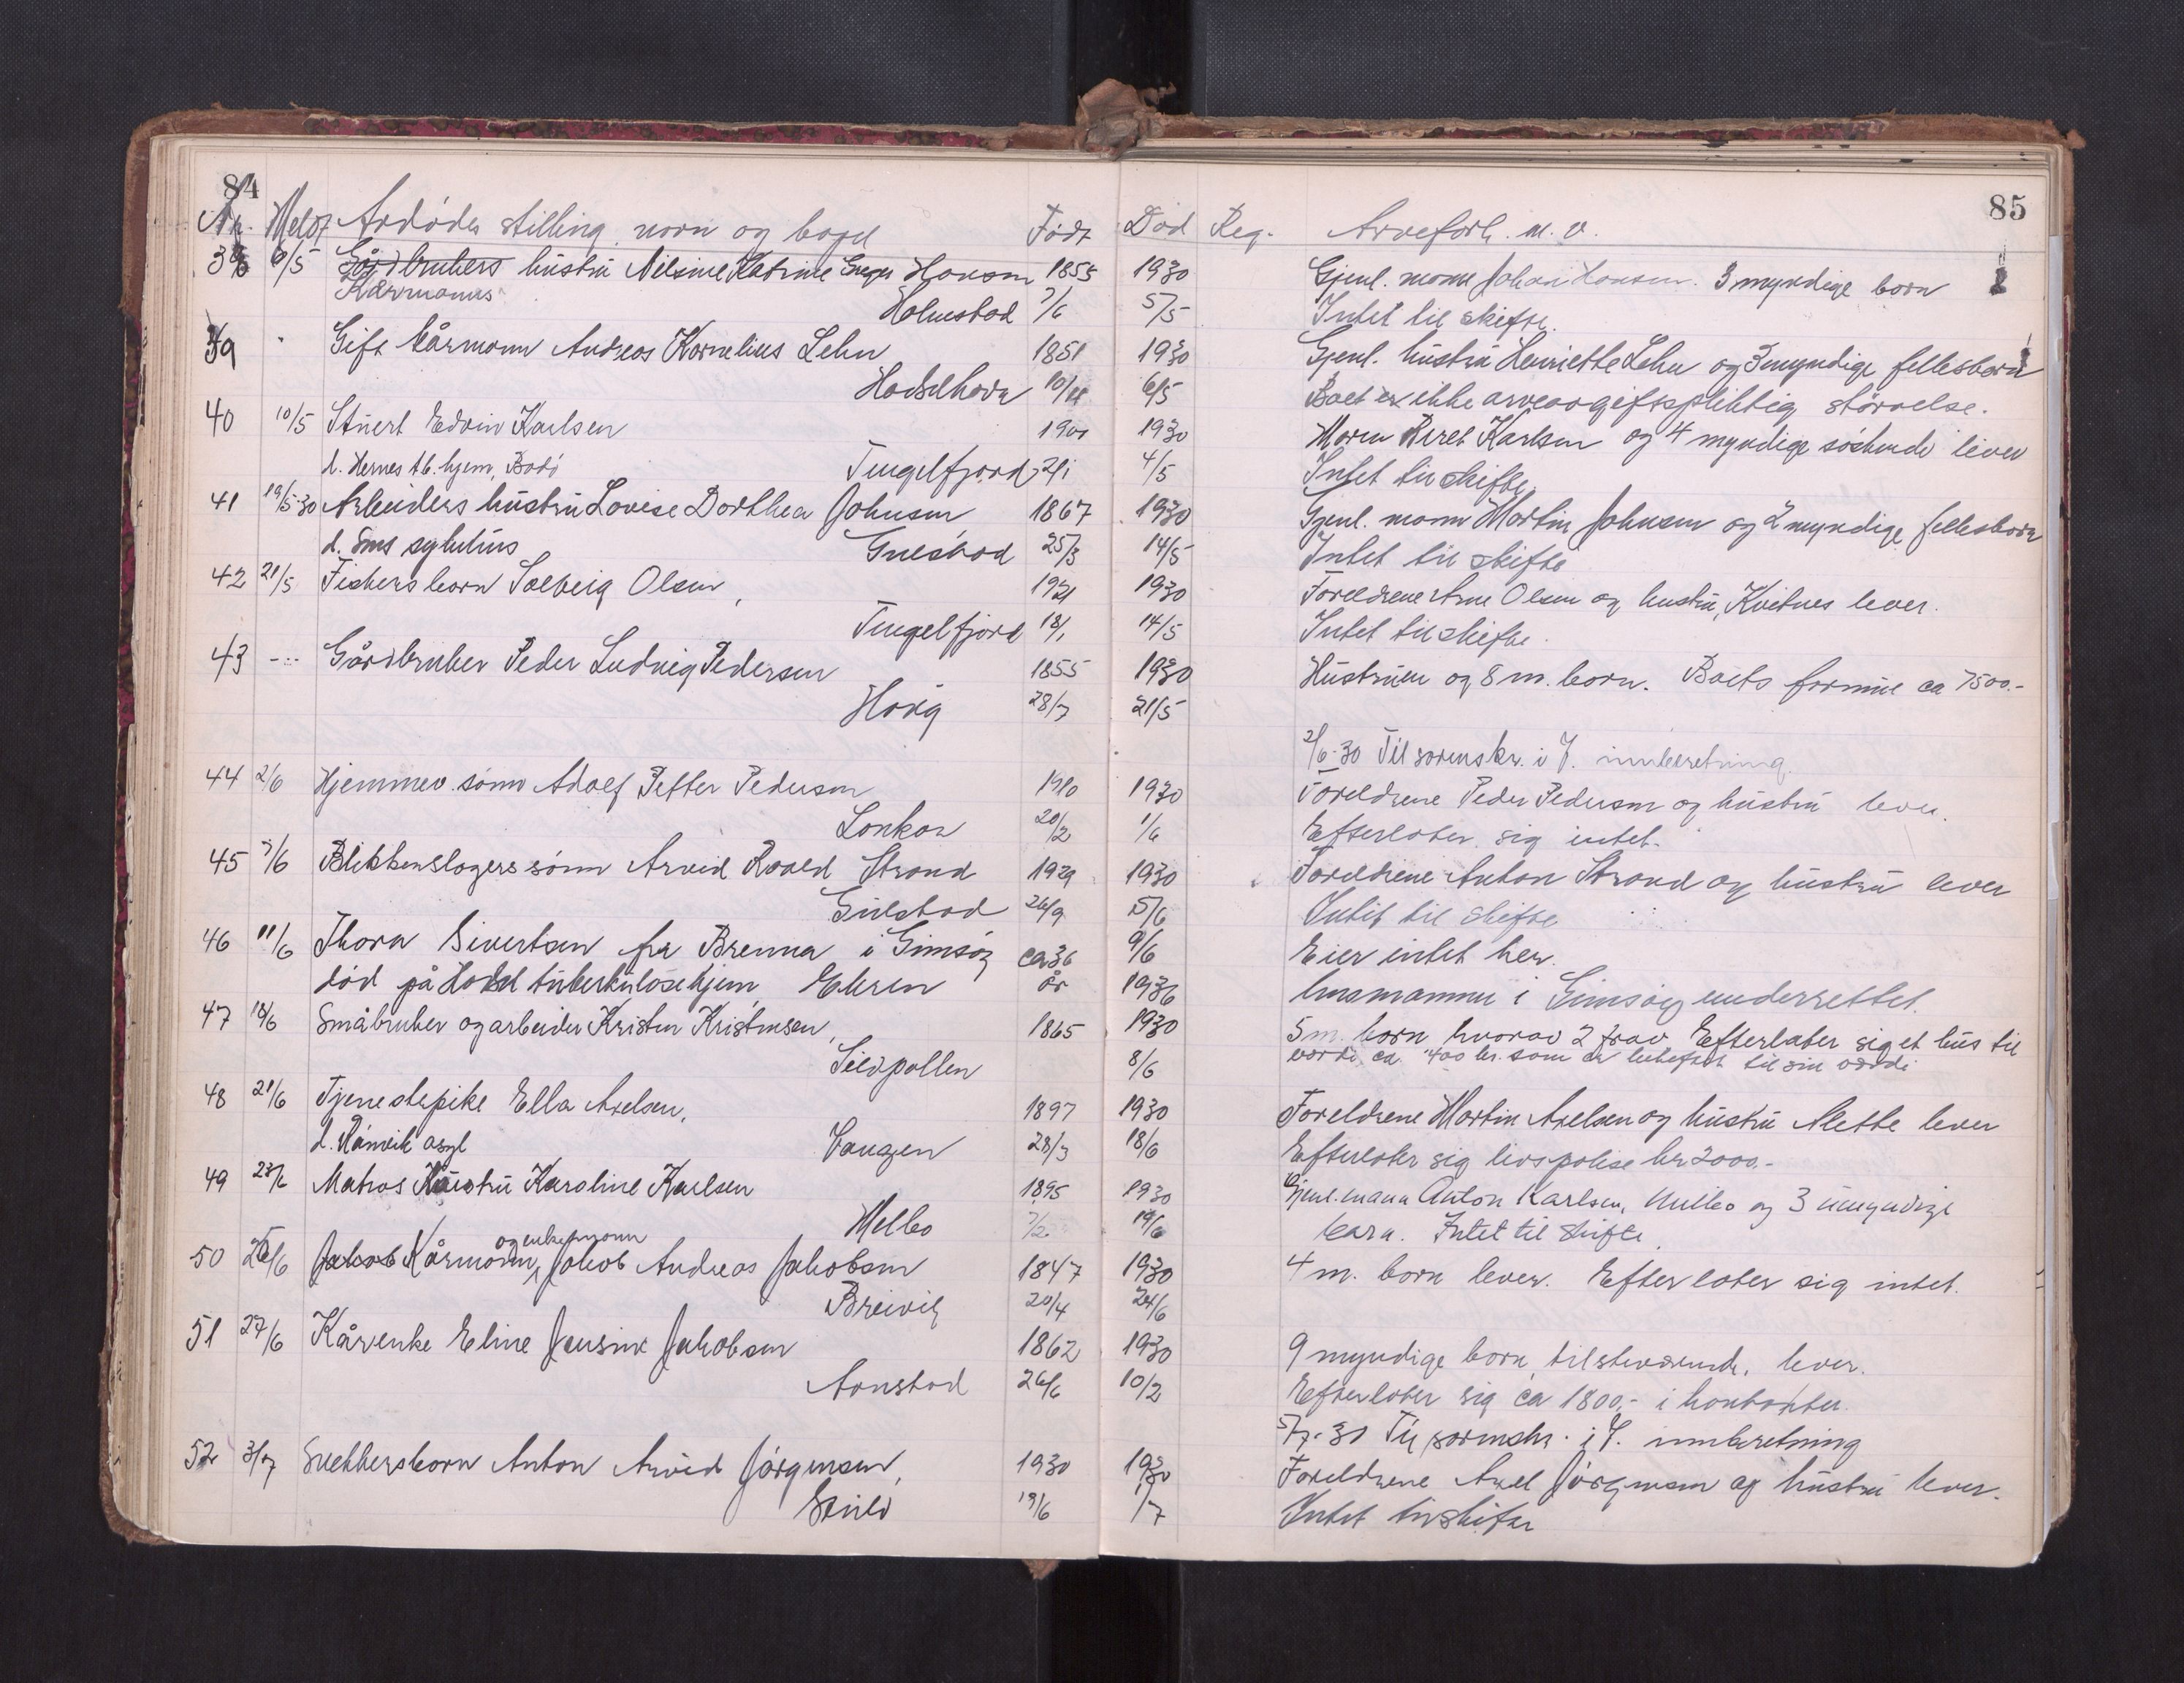 84
85
Nr. Meldt Avdødes stilling, navn og bopel Født Død Reg. Arveforh. m. v.
38 6/5 Gårdbrukers hustru Nilsine Katrine Hansen 1855 1930 Gjenl. mann Johan Hansen. 3 myndige barn
Kårmanns Holmstad 7/6 5/5 Intet til skifte.
39 " Gift kårmann Andreas Kornelius Lehn 1851 1930 Gjenl. hustru Henriette Lehn og 3 myndige fellesbarn
Hadselhavn 10/11 6/5 Boet er ikke arveavgiftspliktig størrelse.
40 10/5 Stuert Edvin Karlsen 1901 1930 Moren Beret Karlsen og 4 myndige søskende lever
d. Hernes tb. hjem, Bodø Tengelfjord 2/1 4/5 Intet til skifte.
41 19/5-30 Arbeiders hustru Lovise Dorthea Johnsen 1867 1930 Gjenl. mann Martin Johnsen og 2 myndige fellesbarn
d. Sms sykehus Gulstad 25/3 14/5 Intet til skifte
42 21/5 Fiskers barn Solveig Olsen, 1921 1930 Foreldrene Arne Olsen og hustru, Kvitnes lever.
Tengelfjord 18/1 14/5 Intet til skifte.
43 -"- Gårdbruker Peder Ludvig Pedersen 1855 1930 Hustruen og 8 m. barn. Boets formue ca 7500.-
Haug 28/7 21/5
2/6-30 Til sorenskr. i V. innberetning.
44 2/6 Hjemmev. sønn Adolf Petter Pedersen 1910 1930 Foreldrene Peder Pedersen og hustru lever.
Lonkan 20/2 1/6 Efterlater sig intet.
45 7/6 Blikkenslagers sønn Arvid Roald Strand 1929 1930 Foreldrene Anton Strand og hustru lever
Gulstad 26/9 5/6 Intet til skifte
46 11/6 Thora Sivertsen fra Brenna i Gimsøy ca 36 9/6 Eier intet her.
død på Hadsel tuberkulosehjem, Ekren år 1930 Lensmannen i Gimsøy underrettet.
47 18/6 Småbruker og arbeider Kristen Kristensen, 1865 1930 5 m. barn hvorav 2 frav. Efterlater sig et hus til
Sildpollen 8/6 verdi ca. 400 kr. som er beheftet til sin verdi
48 21/6 Tjenestepike Ella Axelsen, 1897 1930 Foreldrene Martin Axelsen og hustru Alette lever
d. Rønvik asyl Vangen 28/3 18/6 Efterlater sig livspolise kr 2000.-
49 23/6 Matros hustru Karoline Karlsen 1895 1930 Gjenl. mann Anton Karlsen, Melbo og 3 umyndige
Melbo 7/2 19/6 barn. Intet til skifte.
og enkemann
50 26/6 Jakob Kårmann, Jakob Andreas Jakobsen 1847 1930 4 m. barn lever. Efterlater sig intet.
Breivik 20/4 24/6
51 27/6 Kårenke Eline Jensine Jakobsen 1862 1930 9 myndige barn, tilsteværende, lever.
Aanstad 26/6 10/2 Efterlater sig ca 1800,- i kontanter.
5/7-30 Til sorenskr. i V. innberetning
52 3/7 Snekkersbarn Anton Arvid Jørgensen, 1930 1930 Foreldrene Axel Jørgensen og hustru lever.
19/6 1/7 Intet til skifte